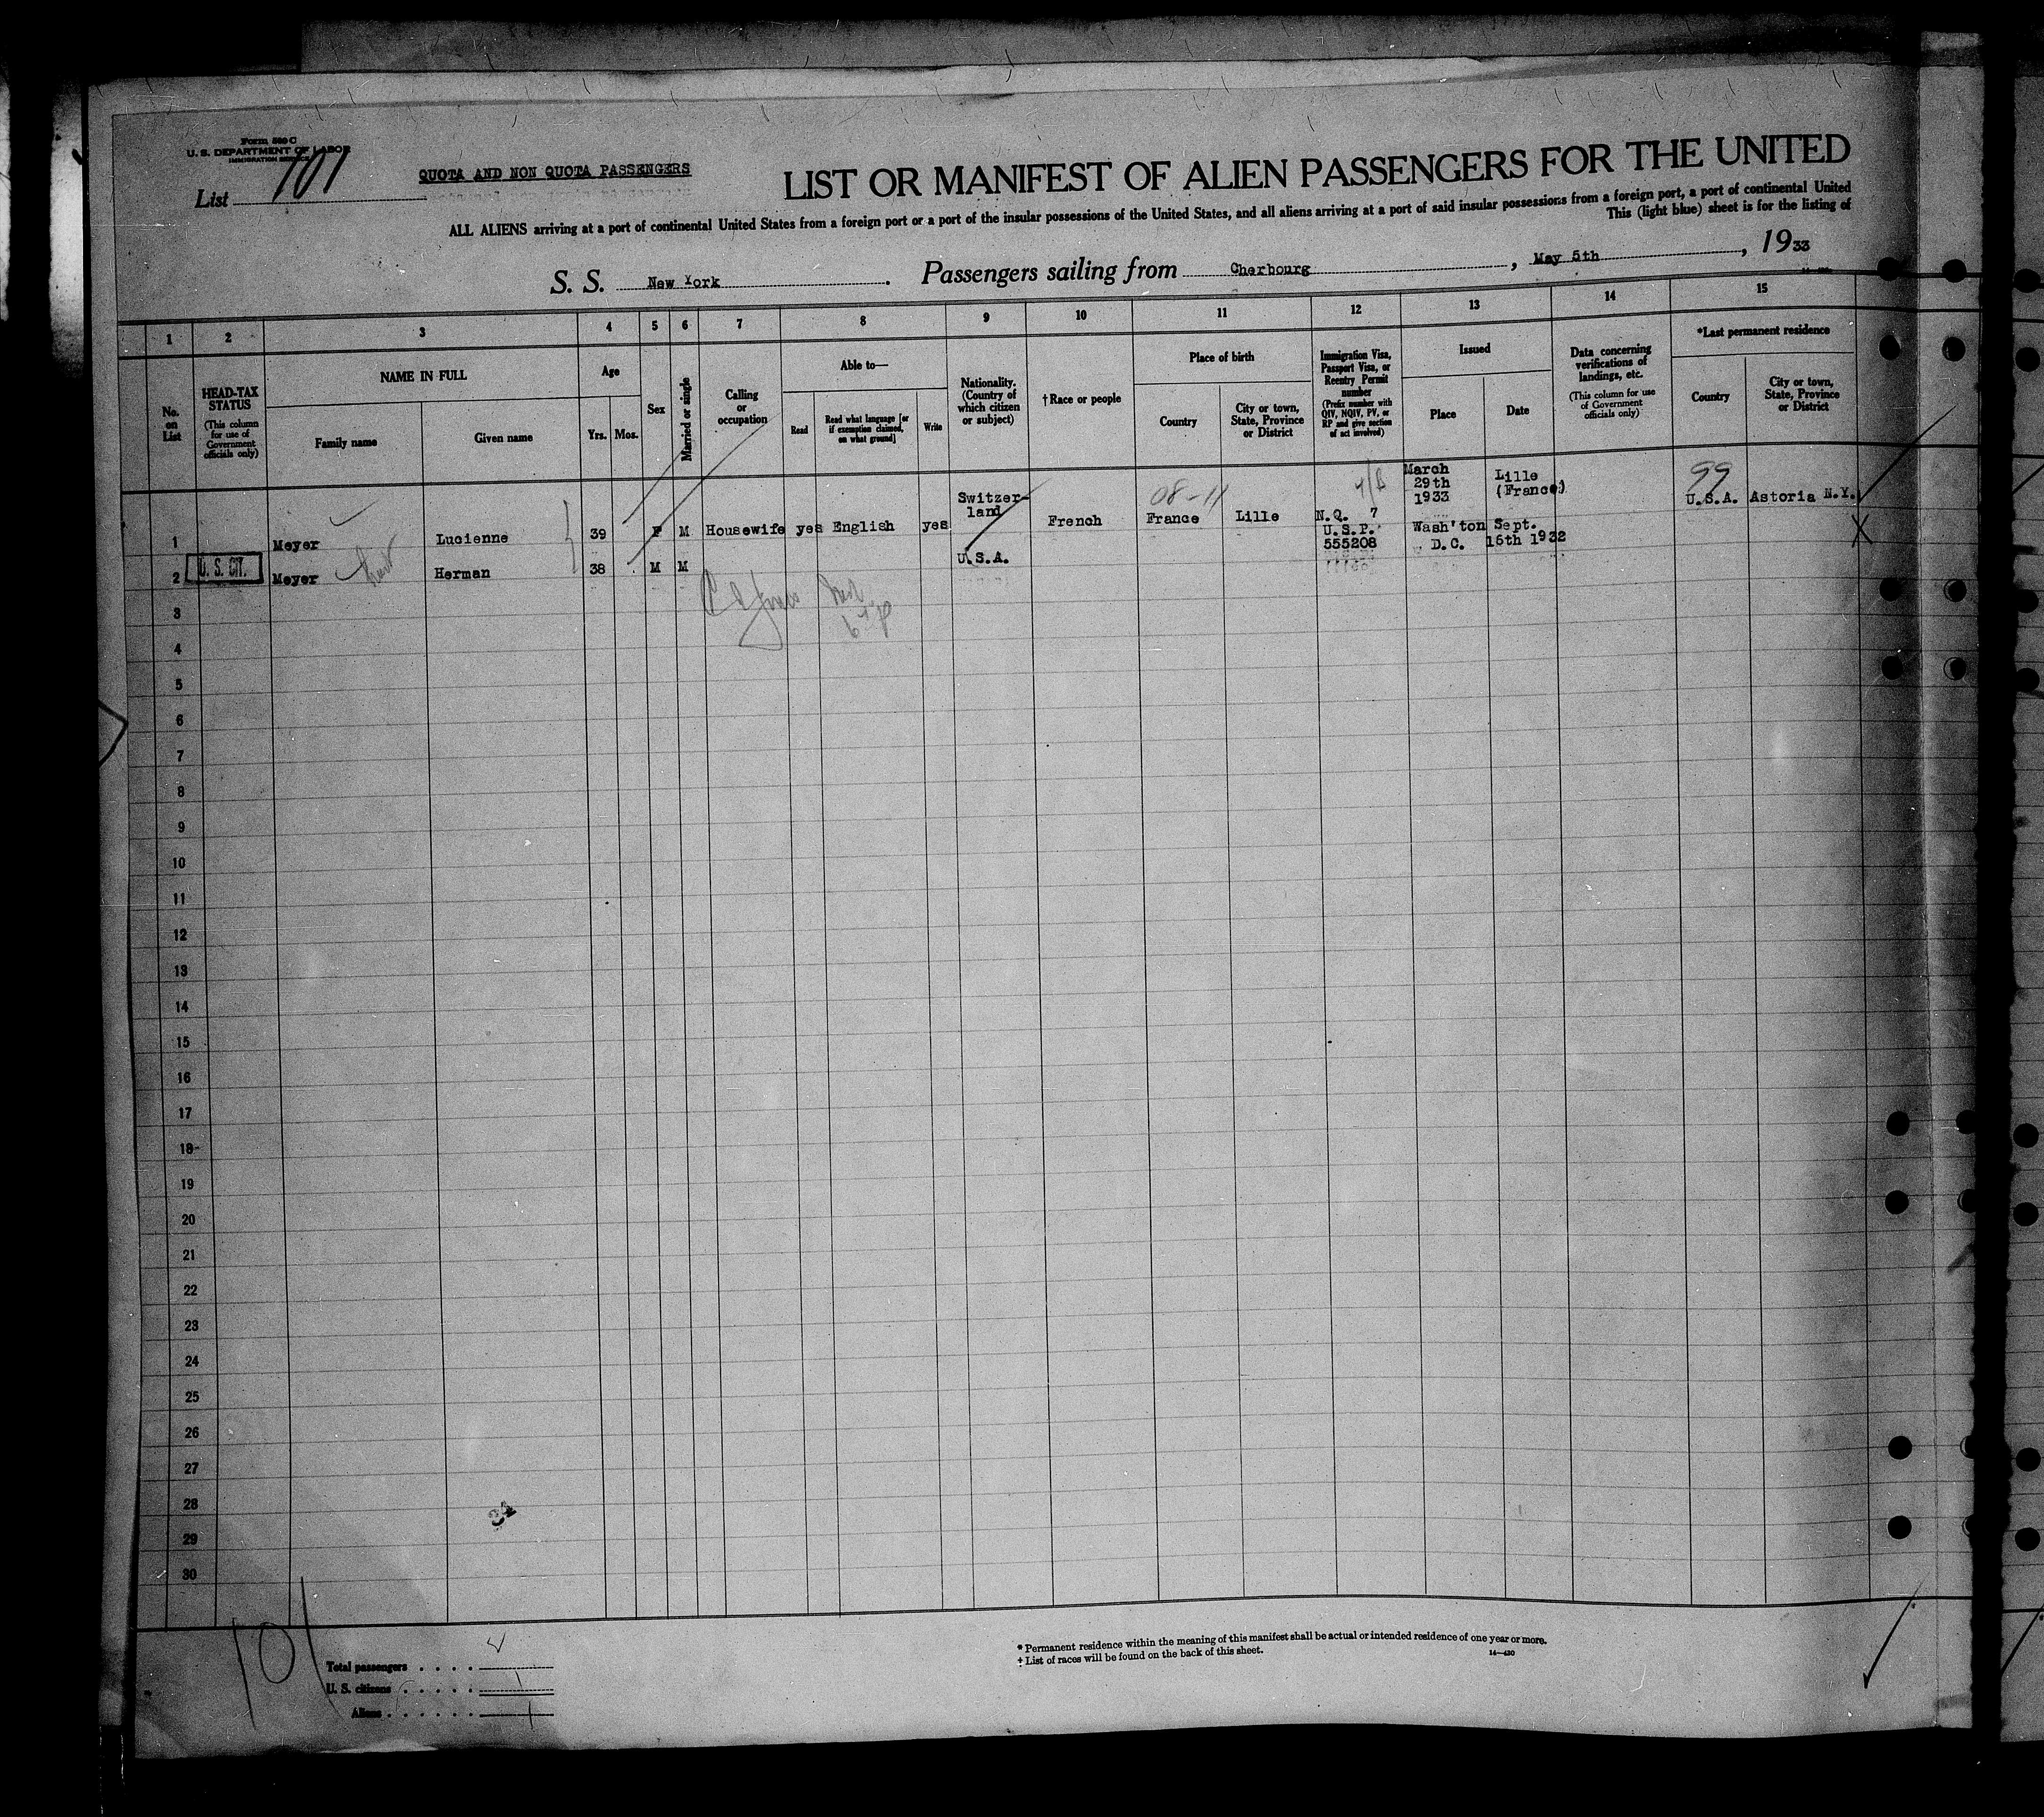 Form 500 C
U. S. DEPARTMENT OF LABOR
IMMIGRATION SERVICE
List 101
QUOTA AND NON QUOTA PASSENGERS
LIST OR MANIFEST OF ALIEN PASSENGERS FOR THE UNITED
ALL ALIENS arriving at a port of continental United States from a foreign port or a port of the insular possessions of the United States, and all aliens arriving at a port of said insular possessions from a foreign port, a port of continental United
This (light blue) sheet is for the listing of
S. S. New York. Passengers sailing from Cherbourg, May 5th, 1933
1 2 3 4 5 6 7 8 9 10 11 12 13 14 15
No. on List
HEAD-TAX STATUS
(This column for use of Government officials only)
NAME IN FULL
Family name
Given name
Age
Yrs. Mos.
Sex
Married or single
Calling or occupation
Able to—
Read
Read what language [or if exemption claimed, on what ground]
Write
Nationality. (Country of which citizen or subject)
†Race or people
Place of birth
Country
City or town, State, Province or District
Immigration Visa, Passport Visa, or Reentry Permit number
(Prefix number with QIV, NQIV, PV, or RP and give section of act involved)
Issued
Place
Date
Data concerning verifications of landings, etc.
(This column for use of Government officials only)
*Last permanent residence
Country
City or town, State, Province or District
08-11
99
1 Meyer Lucienne 39 F M Housewife yes English yes Switzer-land French France Lille N.Q. 7 March 29th 1933 Lille (France) U.S.A. Astoria N.Y.
2 U. S. CIT. Meyer Herman 38 M M U.S.A. U.S.P. 555208 Wash'ton D.C. Sept. 16th 1932
X
3
4
5
6
7
8
9
10
11
12
13
14
15
16
17
18
19
20
21
22
23
24
25
26
27
28
29
30
101
Total passengers
U. S. citizens 1
Aliens 1
* Permanent residence within the meaning of this manifest shall be actual or intended residence of one year or more.
† List of races will be found on the back of this sheet.
14—430